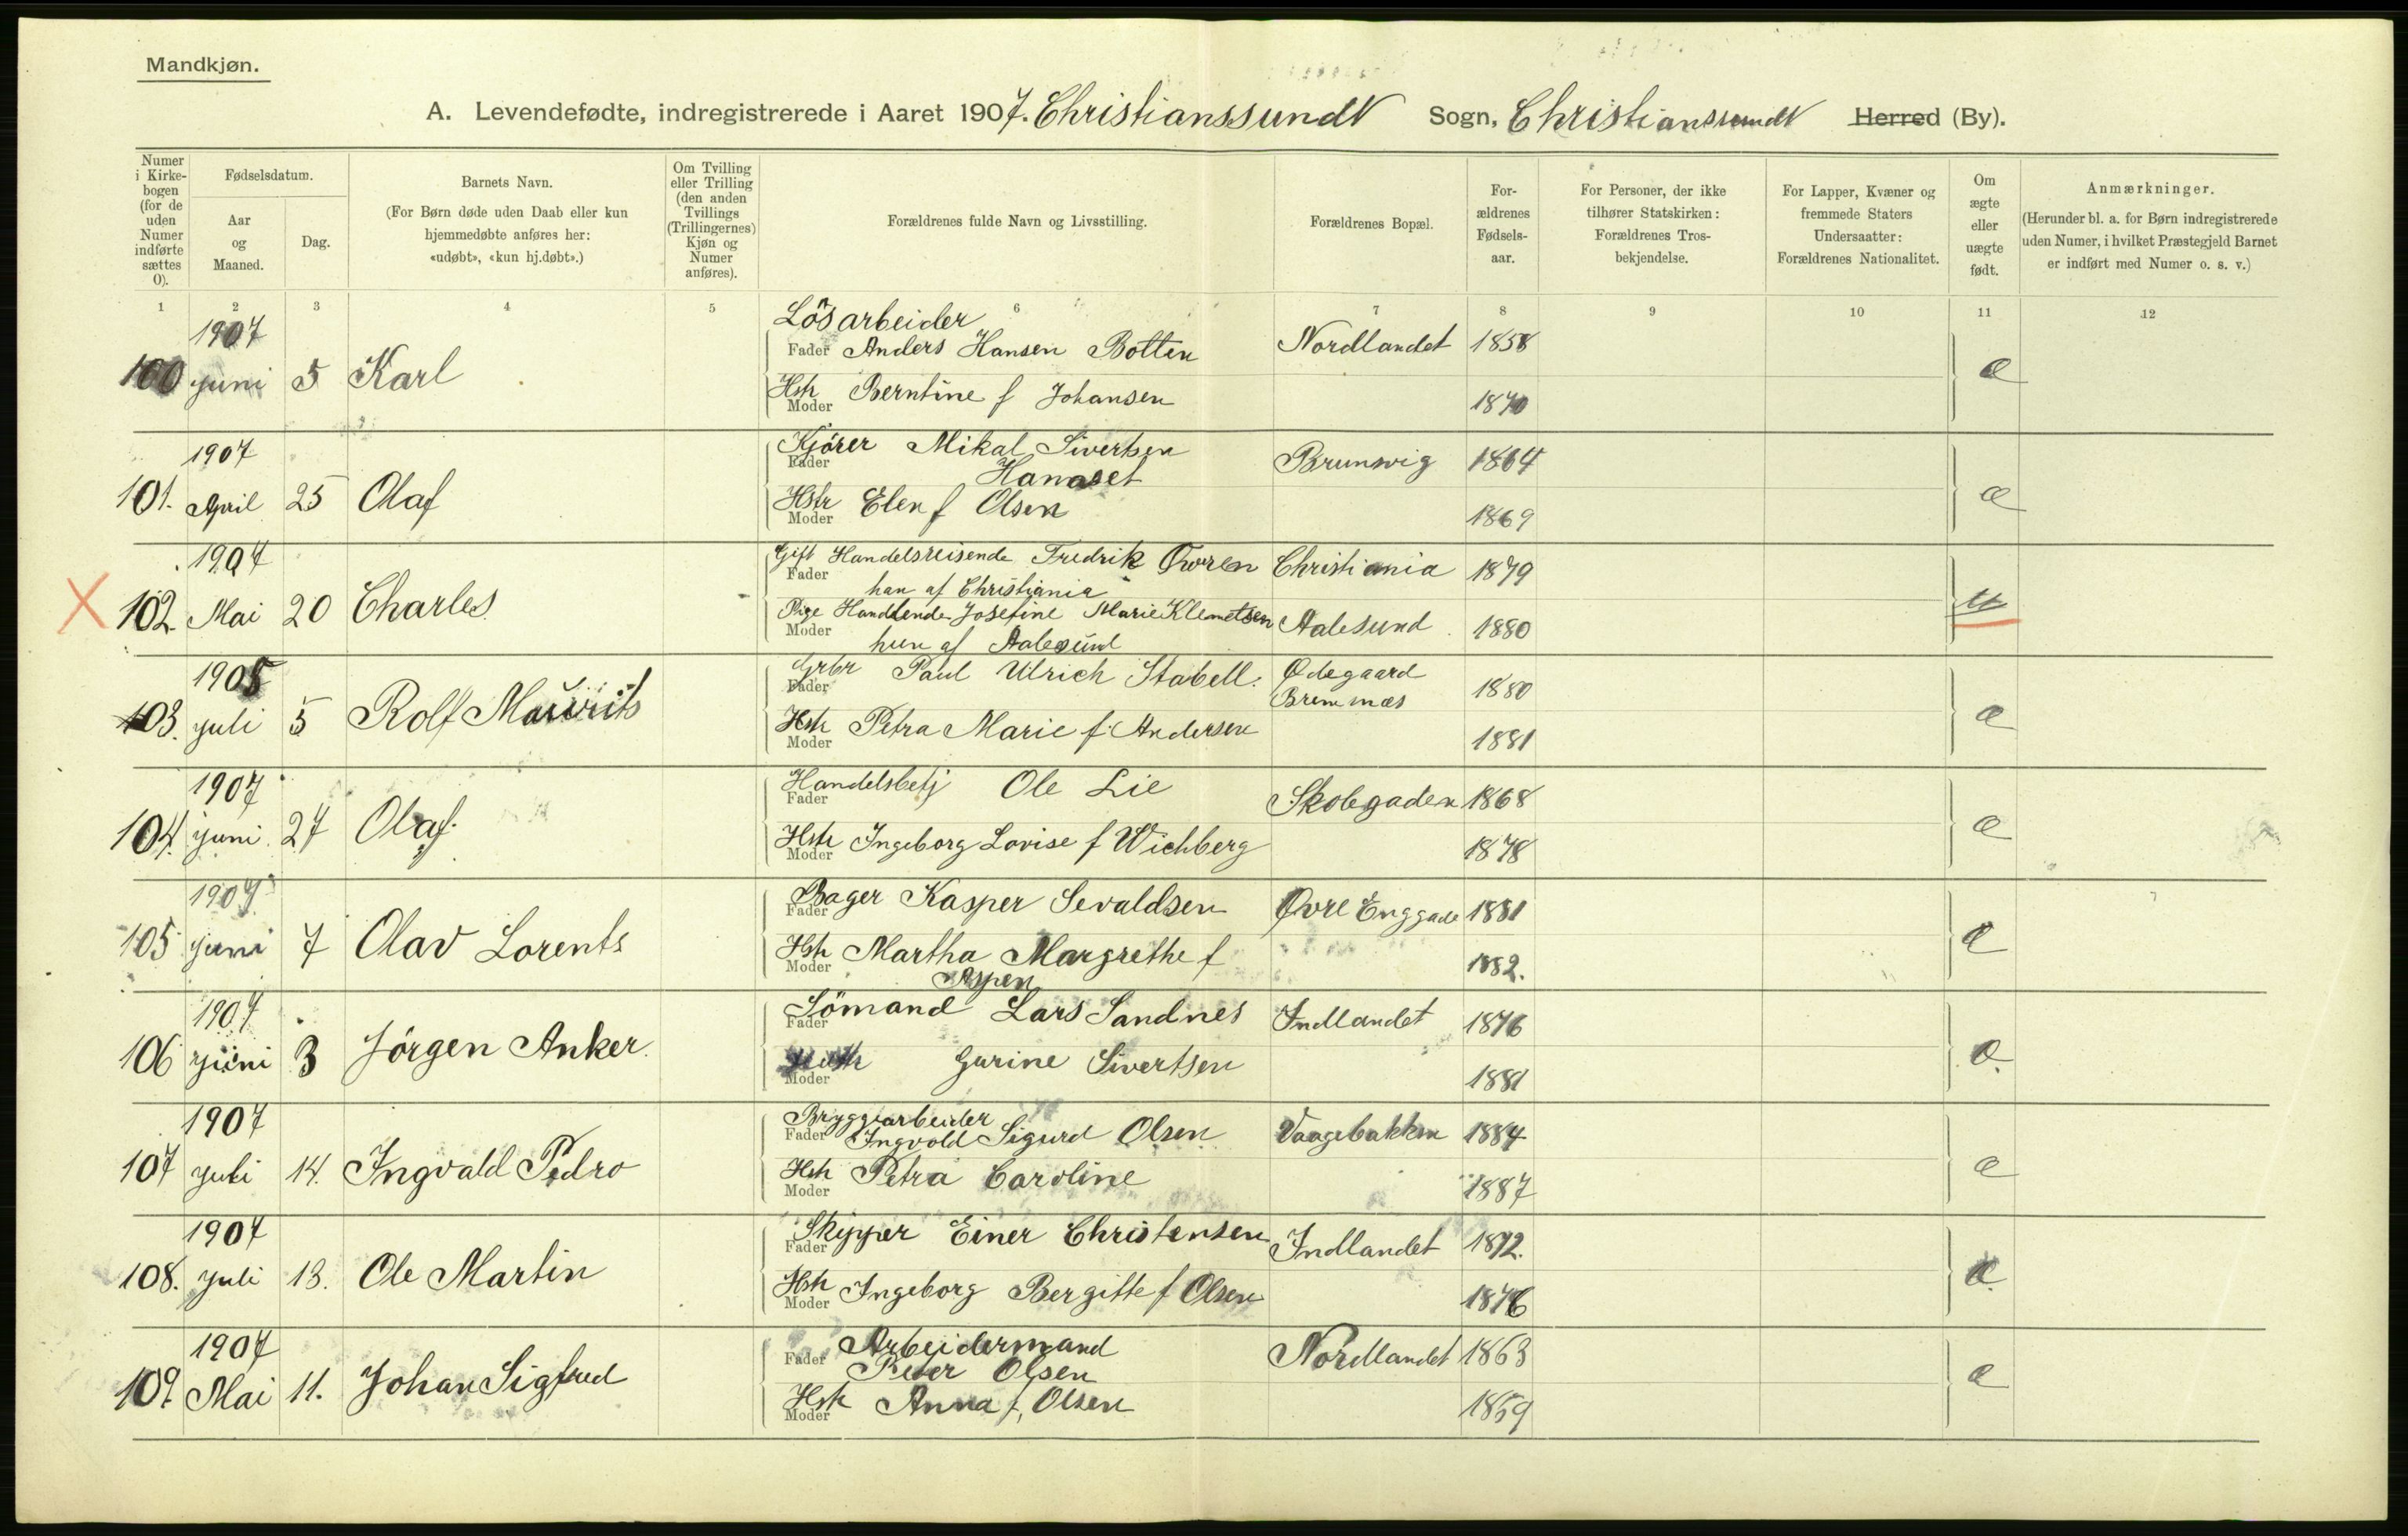 Mandkjøn.
A. Levendefødte, indregistrerede i Aaret 1907. Christianssundt Sogn, Christianssundt Herred (By).
Numer i Kirkebogen (for de uden Numer indførte sættes O).
Fødselsdatum.
Aar og Maaned.
Dag.
Barnets Navn.
(For Børn døde uden Daab eller kun hjemmedøbte anføres her: «udøbt», «kun hj.døbt».)
Om Tvilling eller Trilling (den anden Tvillings (Trillingernes) Kjøn og Numer anføres).
Forældrenes fulde Navn og Livsstilling.
Forældrenes Bopæl.
Forældrenes Fødselsaar.
For Personer, der ikke tilhører Statskirken: Forældrenes Trosbekjendelse.
For Lapper, Kvæner og fremmede Staters Undersaatter: Forældrenes Nationalitet.
Om ægte eller uægte født.
Anmærkninger.
(Herunder bl. a. for Børn indregistrerede uden Numer, i hvilket Præstegjeld Barnet er indført med Numer o. s. v.)
1 2 3 4 5 6 7 8 9 10 11 12
1907 Lösarbeider
100 juni 5 Karl Fader Anders Hansen Botten Nordlandet 1858 æ
Hstr Moder Berntine f Johansen 1870
1907 Kjörer Fader Mikal Sivertsen Brunsvig 1864
Hanaset
101. April 25 Olaf Hstr Moder Elen f Olsen 1869 æ
1907 Gift Handelsreisende Fader Fredrik Øwren Christiania 1879
han af Christiania
X 102. Mai 20 Charles Pige Handlende Moder Josefine Marie Klemetsen Aalesund 1880 u
hun af Aalesund
1905 Grbr Fader Paul Ulrich Stabell. Ødegaard Bremnæs 1880
103. juli 5 Rolf Mauritz Hstr Moder Petra Marie f. Andersen 1881 æ
1907 Handelsbetj Fader Ole Lie Skolegaden 1868
104. juni 27 Olaf. Hstr Moder Ingeborg Lovise f Wichberg 1878 æ
1907 Bager Fader Kasper Sevaldsen Øvre Enggade 1881
105 juni 7 Olav Lorents Hstr Moder Martha Margrethe f 1882. æ
Aspen
1907 Sömand Fader Lars Sandnes Indlandet 1876
106 juni 3 Jörgen Anker. Hustr Moder Gurine Sivertsen 1881 æ
1907 Bryggearbeider
Fader Ingvold Sigurd Olsen Vaagebakken 1884
107 juli 14. Ingvald Pedro Hstr Moder Petra Caroline 1887 æ
1907 Skipper Fader Einer Christensen Indlandet 1872.
108. juli 13. Ole Martin Hstr Moder Ingeborg Bergitte f Olsen 1876 æ
1907 Arbeidermand
Fader Peter Olsen Nordlandet 1863
109. Mai 11. Johan Sigfred Hstr Moder Anna f. Olsen 1869 æ